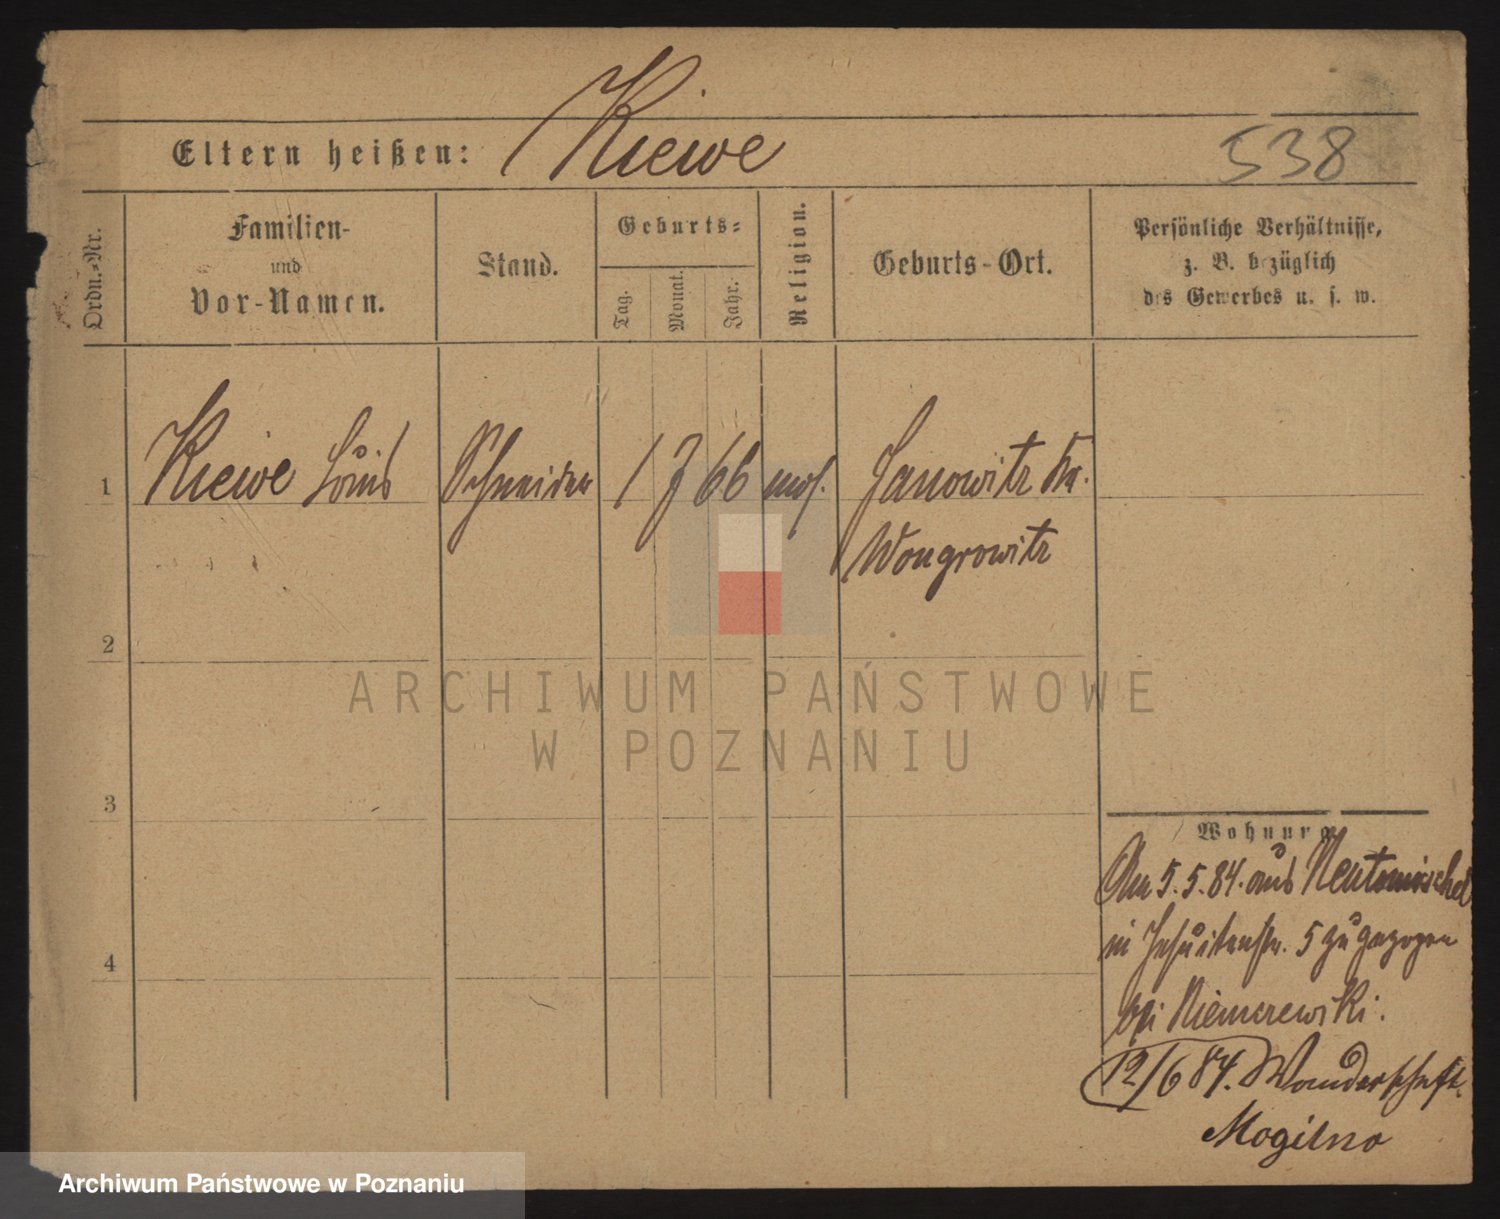 Kiewe
Eltern heißen:
538
Ordn.-Nr.
Familien-
und
Vor-Namen.
Stand.
Geburts-
Tag.
Monat.
Jahr.
Religion.
Geburts-Ort.
Persönliche Verhältnisse,
z. B. bezüglich
des Gewerbes u. s. w.
1
Kiewe Louis
Schneider
1 7 66
mos.
Janowitz Kr.
Wongrowitz
2
3
4
Wohnung
Am 5.5.84. aus Neutomischel
in Jesuitenstr. 5 zugezogen
bei Niemczewski.
12/6 84. Wanderschaft.
Mogilno
ARCHIWUM PAŃSTWOWE
W POZNANIU
Archiwum Państwowe w Poznaniu